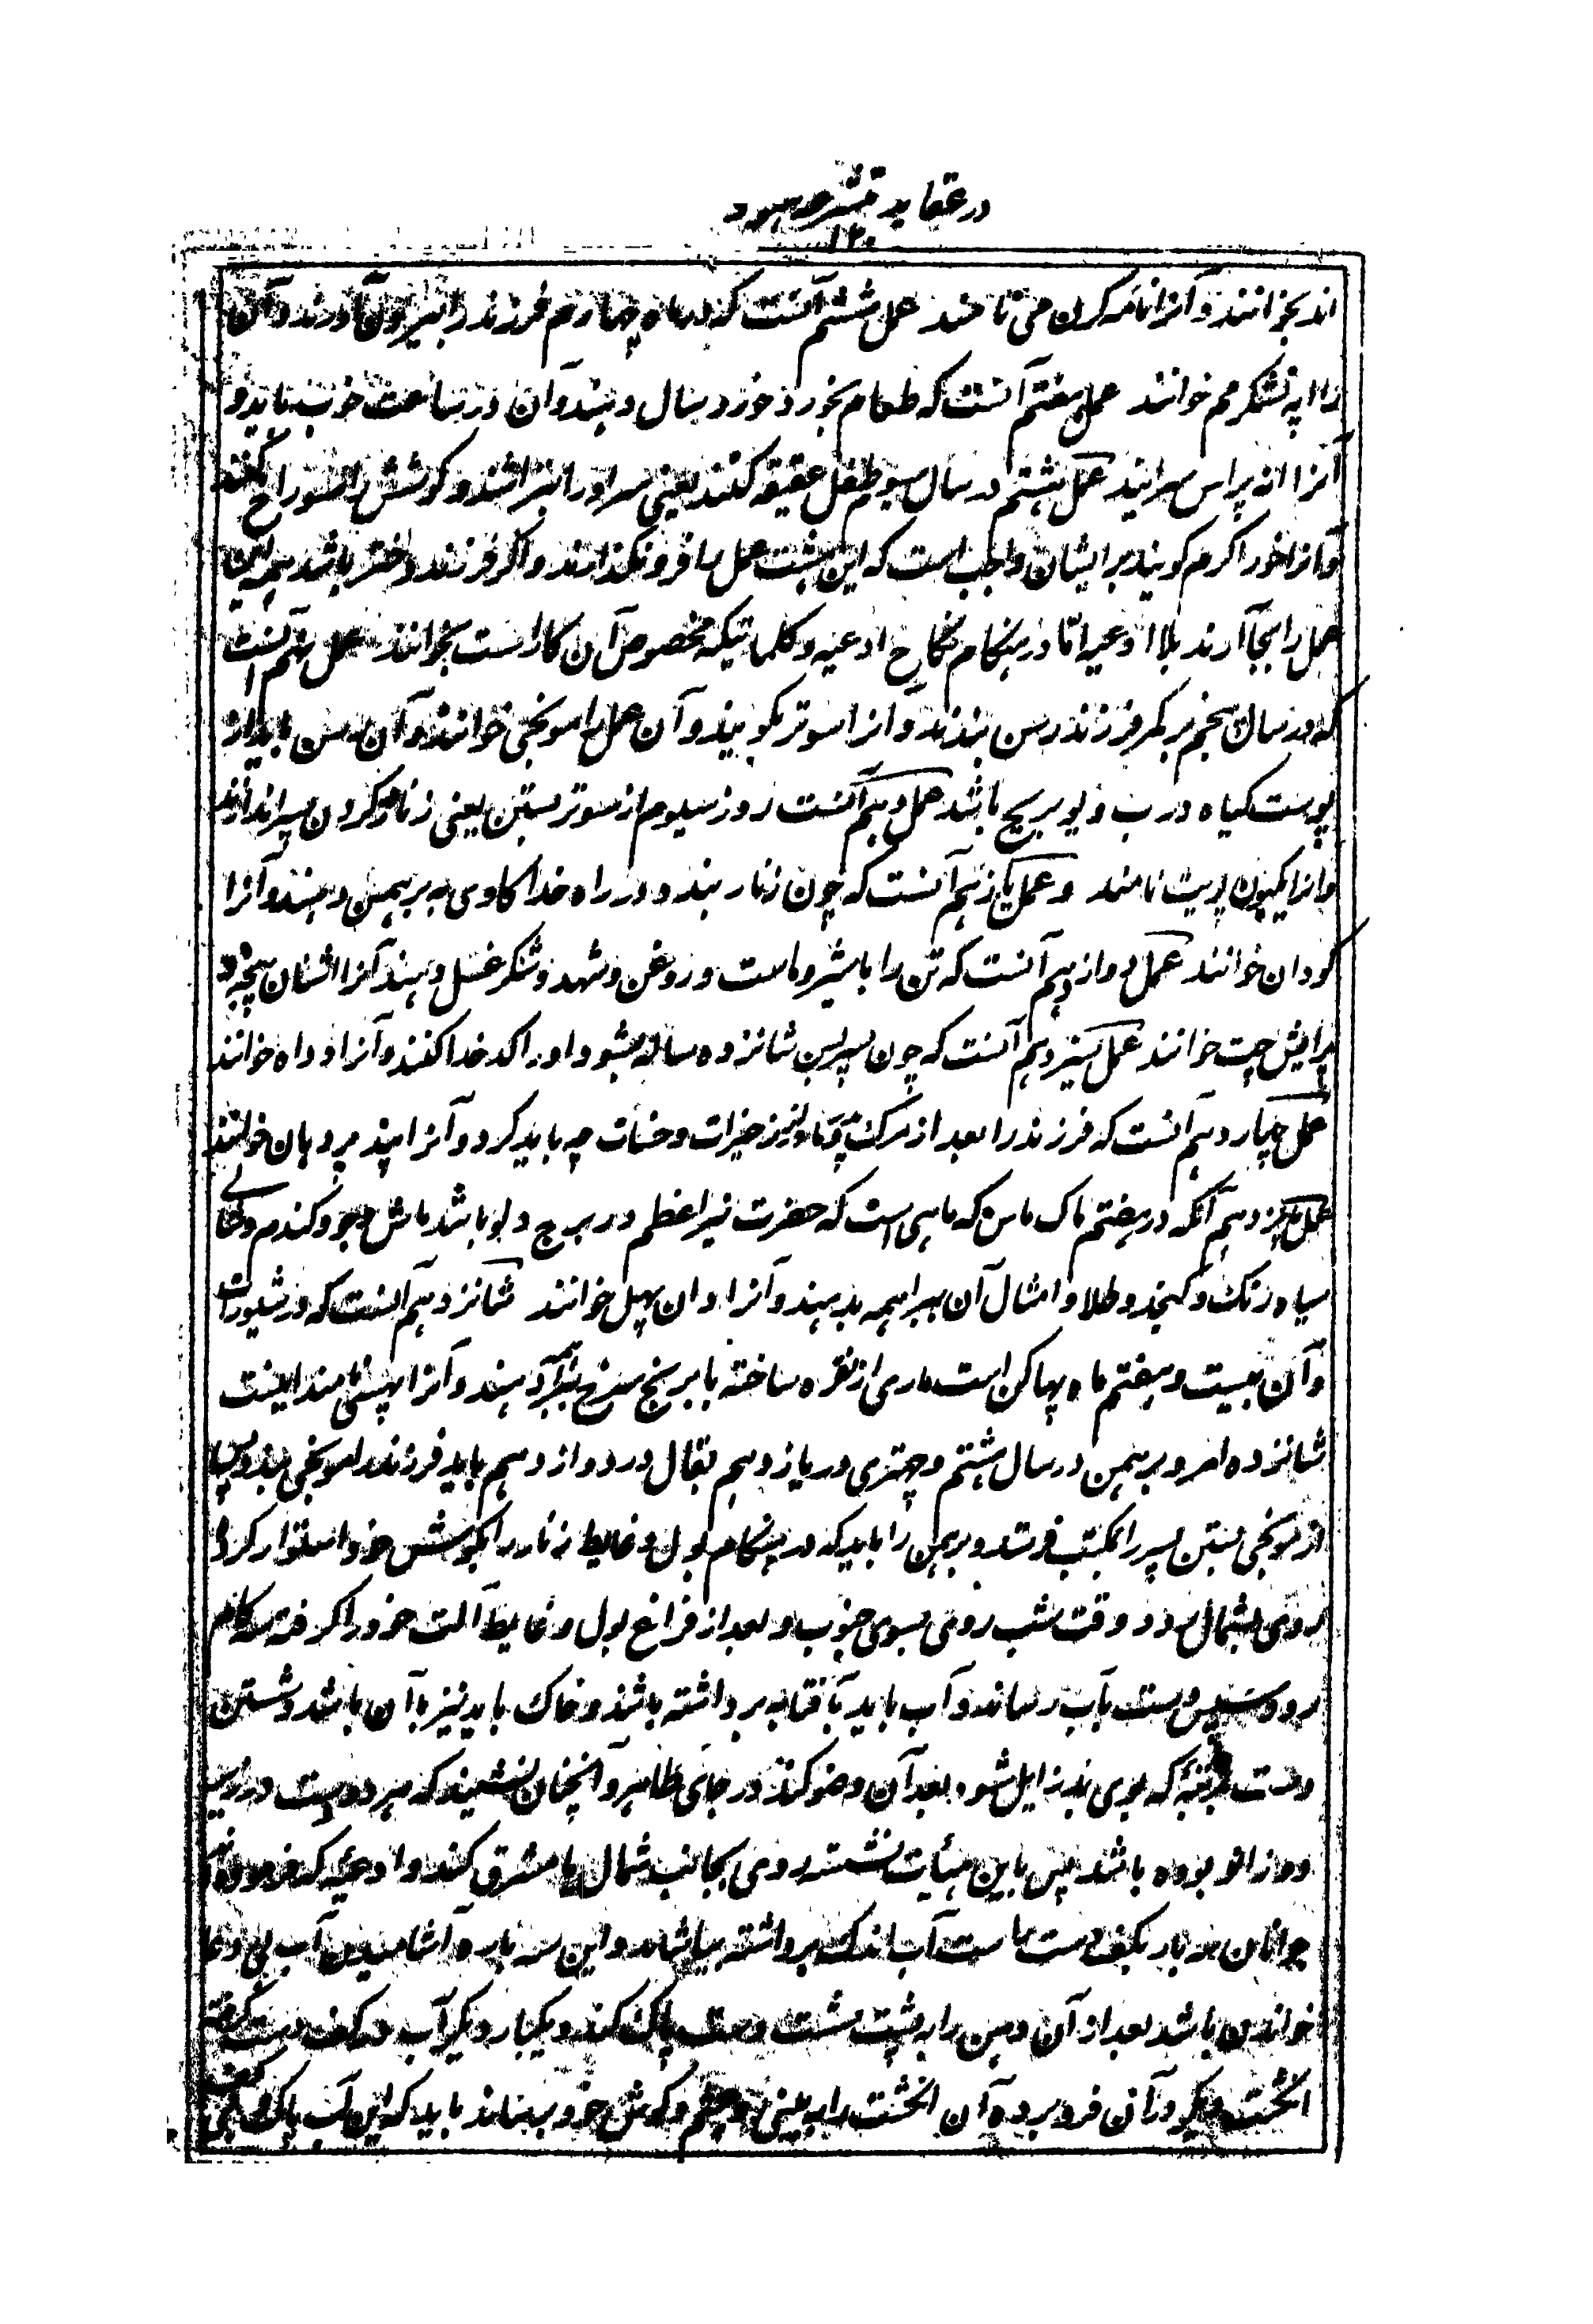 در عقاید متشرعه هنود
۱۳۰
اند بخوانند و آنرا نامه کرن می نامند عمل ششم آنست که در ماه چهارم فرزند را بیرون آورند و آن
را اپه نشکرمم خوانند عمل هفتم آنست که طعام بخورد خورد سال دهند و آن در ساعت خوب باید و
آنرا انه پراس سرایند عمل هشتم در سال سیوم طفل عقیقه کنند یعنی سر او را بتراشند و گوشش را سوراخ کنند
و آنرا خورا کرم گویند بر ایشان واجب است که این هشت عمل را فرو نگذارند و اگر فرزند دختر باشد همه این
عمل را بجا آرند بلا ادعیه اما در هنگام نکاح ادعیه و کلماتیکه مخصوص آن کار است بخوانند عمل نهم آنست
که در سال پنجم بر کمر فرزند رسن بندند و آنرا سوتر گویند و آن عمل را مونجی خوانند و آن رسن باید از
پوست گیاه درب و یوبریج باشد عمل دهم آنست روز سیوم از سوتر بستن یعنی زنار در گردن پسر اندازند
و آنرا یگیون پویت نامند و عمل یازدهم آنست که چون زنار بندد در راه خدا گاوی به برهمن دهند و آنرا
گودان خوانند عمل دوازدهم آنست که تن را با شیر و ماست و روغن و شهد و شکر غسل دهند آنرا اشنان
پرایش چت خوانند عمل سیزدهم آنست که چون پسر بسن شانزده ساله شود او را کدخدا کنند و آنرا اوداه خوانند
عمل چهاردهم آنست که فرزند را بعد از مرگ خیرات و حسنات چه باید کرد و آنرا پند پردهان خوانند
عمل پانزدهم آنکه در هفتم ماک ماس که ماهی است که حضرت نیر اعظم در برج دلو باشد ماش و جو و گندم و
سیاه رنگ و کنجد و طلا و امثال آن به براهمه بدهند و آنرا دان پهل خوانند شانزدهم آنست که در شیورات
و آن بیست و هفتم ماه پهاکن است ماری از نقره ساخته با برنج سرخ دهند و آنرا نامند اینست
شانزده امر و برهمن در سال هشتم و چتری در یازدهم بقال در دوازدهم باید فرزند را مونجی بندد پس
از مونجی بستن پسر را بمکتب فرستد و برهمن را باید که در هنگام بول و غایط زنار را بگوشش خود استوار کرده
روی بشمال و وقت شب روی بسوی جنوب و بعد از فراغ بول و غایط آلت خود را گرفته سه گام
رود و سپس دست بآب رساند و آب باید بآفتابه برداشته باشد و خاک باید نیز با آن باشد و شستن
دست که بوی بد زایل شود بعد آن وضو کند در جای طاهر و آنچنان نشیند که هر دو دست در زیر
دو زانو بوده باشد پس باین هیأت نشسته روی بجانب شمال یا مشرق کند و ادعیه که
خوانان سه بار بکف دست راست آب اندک برداشته بیاشامد و این سه بار آشامیدن آب بی دعا
خواندن باشد بعد از آن دهن را به پشت مشت دست پاک کند و یکبار دیگر آب در کف دست گرفته
انگشت دیگر در آن فرو برده آن انگشت را به بینی و چشم و گوش خود برساند باید که این آب پاک